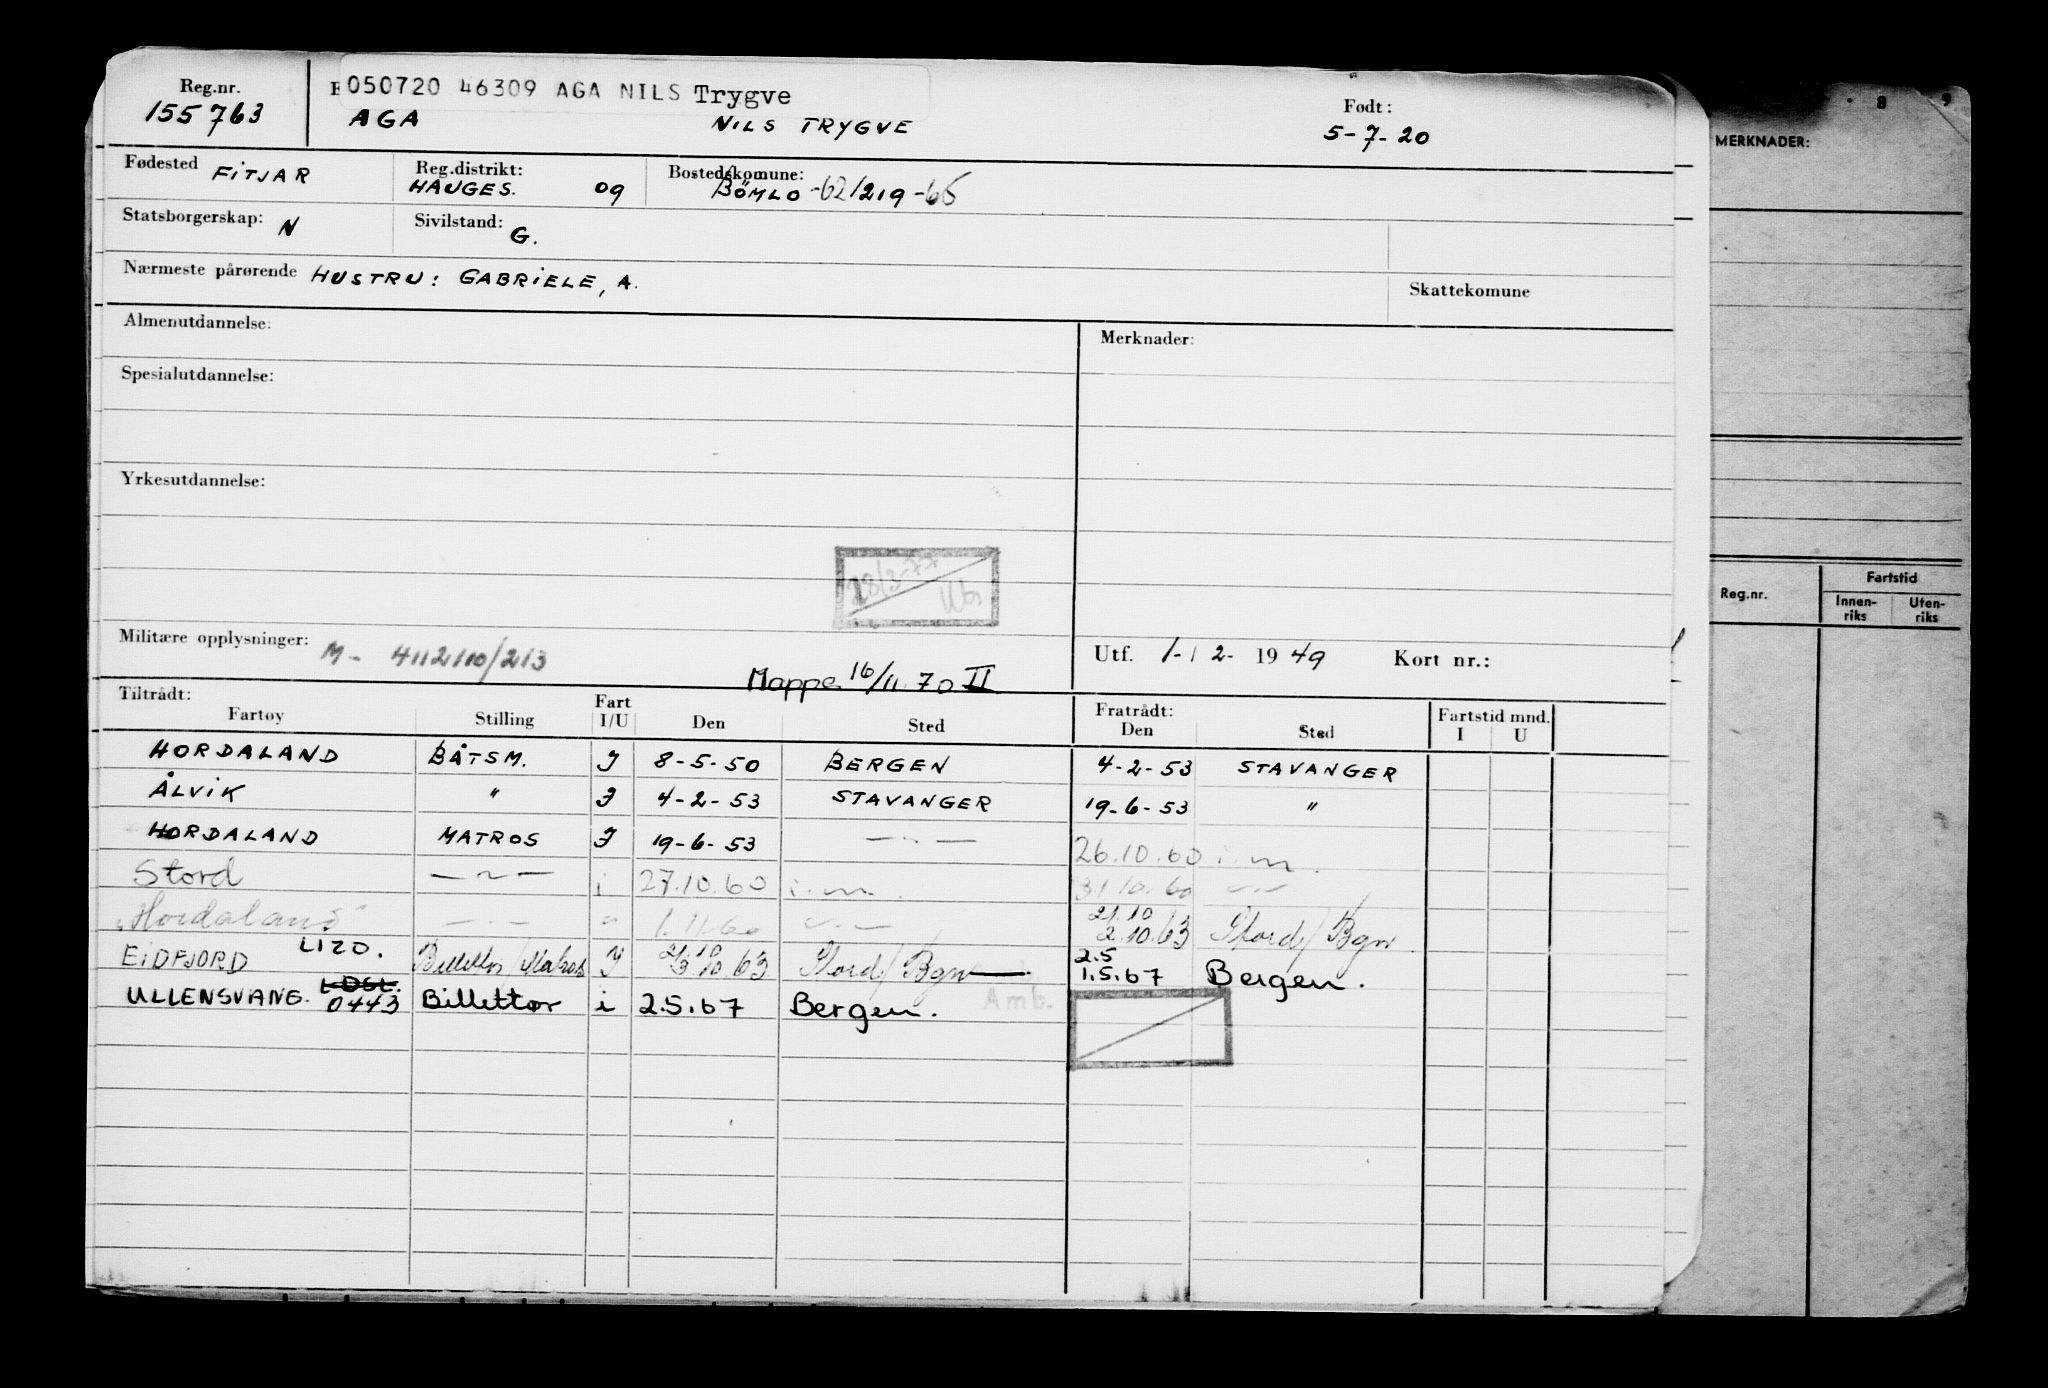 Reg.nr. 050720 46309 AGA NILS Trygve Født:
155763 AGA NILS TRYGVE 5-7-20
Fødested FITJAR Reg.distrikt: HAUGES. 09 Bostedskomune: BÖMLO -62/219-65
Statsborgerskap: N Sivilstand: G.
Nærmeste pårørende HUSTRU: GABRIELE, A. Skattekomune
Almenutdannelse: Merknader:
Spesialutdannelse:
Yrkesutdannelse:
28/3-77
Militære opplysninger: M- 4112/10/213 Mappe 16/11.70 II Utf. 1-12-1949 Kort nr.:
Tiltrådt: Fart Fratrådt: Fartstid mnd.
Fartøy Stilling I/U Den Sted Den Sted I U
HORDALAND BÅTSM. I 8-5-50 BERGEN 4-2-53 STAVANGER
ÅLVIK " I 4-2-53 STAVANGER 19-6-53 "
HORDALAND MATROS I 19-6-53 —"— 26.10.60 i.m.
Stord —"— i 27.10.60 i.m. 31.10.60 —"—
"Hordaland" —"— " 1.11.60 —"— 21.10 2.10.63 Stord/Bgn
EIDFJORD LIZO. Billettør/Matros I 10.63 Stord/Bgn 2.5 1.5.67 Bergen.
ULLENSVANG. LDSL. 0443 Billettør i 2.5.67 Bergen. Amb.
8 9
MERKNADER:
Reg.nr. Fartstid
Innenriks Utenriks